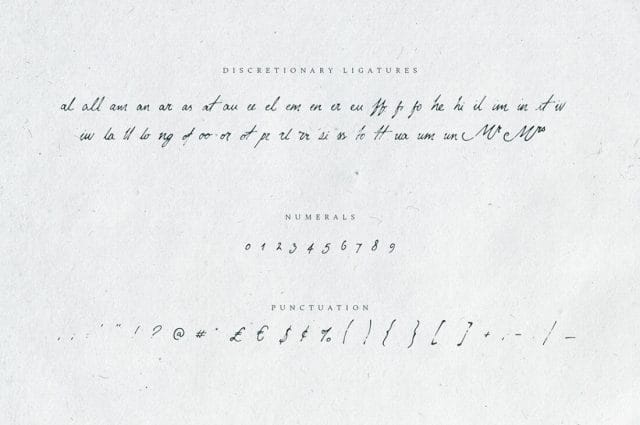 DISCRETIONARY LIGATURES
al all am an ar as at au ee el em en er eu ff fi fo he hi il im in it iv
iw la ll lo ng of oo or ot pr rl rr si ss to tt ua um un Mr Mrs
NUMERALS
0 1 2 3 4 5 6 7 8 9
PUNCTUATION
. , : ; ' " ! ? @ # * £ € $ ¢ % ( ) { } [ ] + - / _